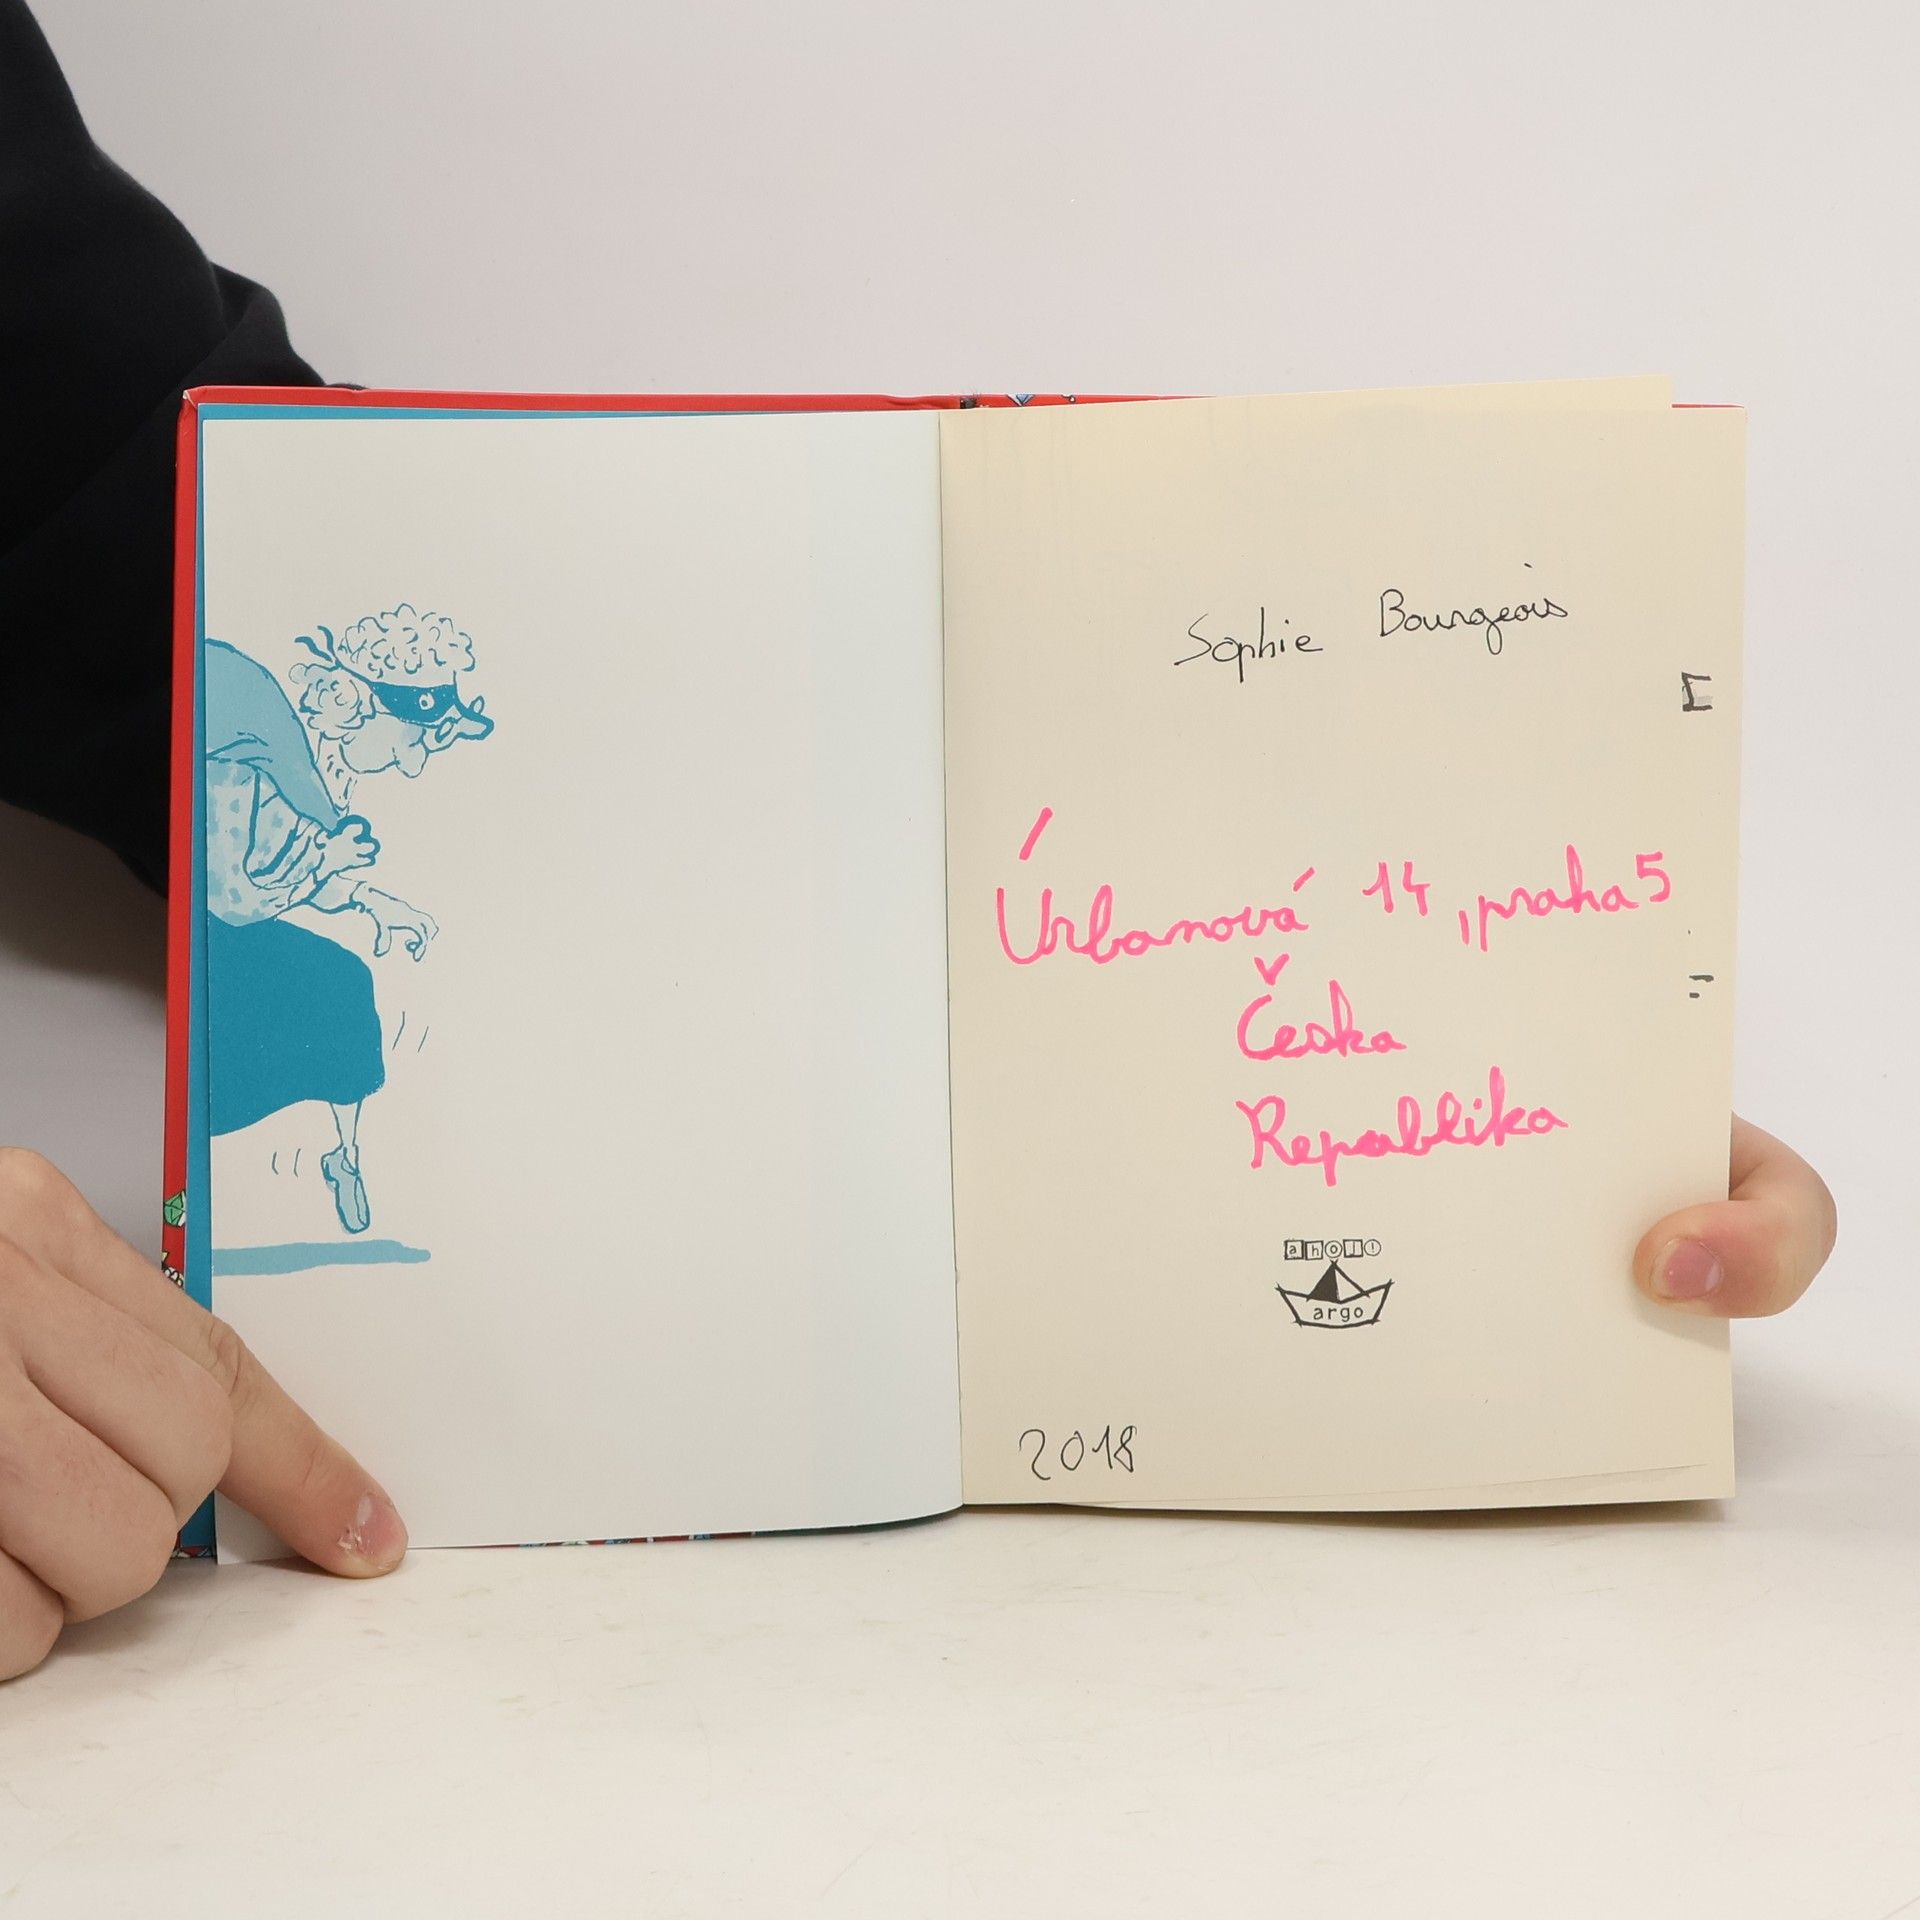 Sophie Bourgeois
Úrbanová 14, praha 5
Česka
Repablika
ahoj!
argo
2018